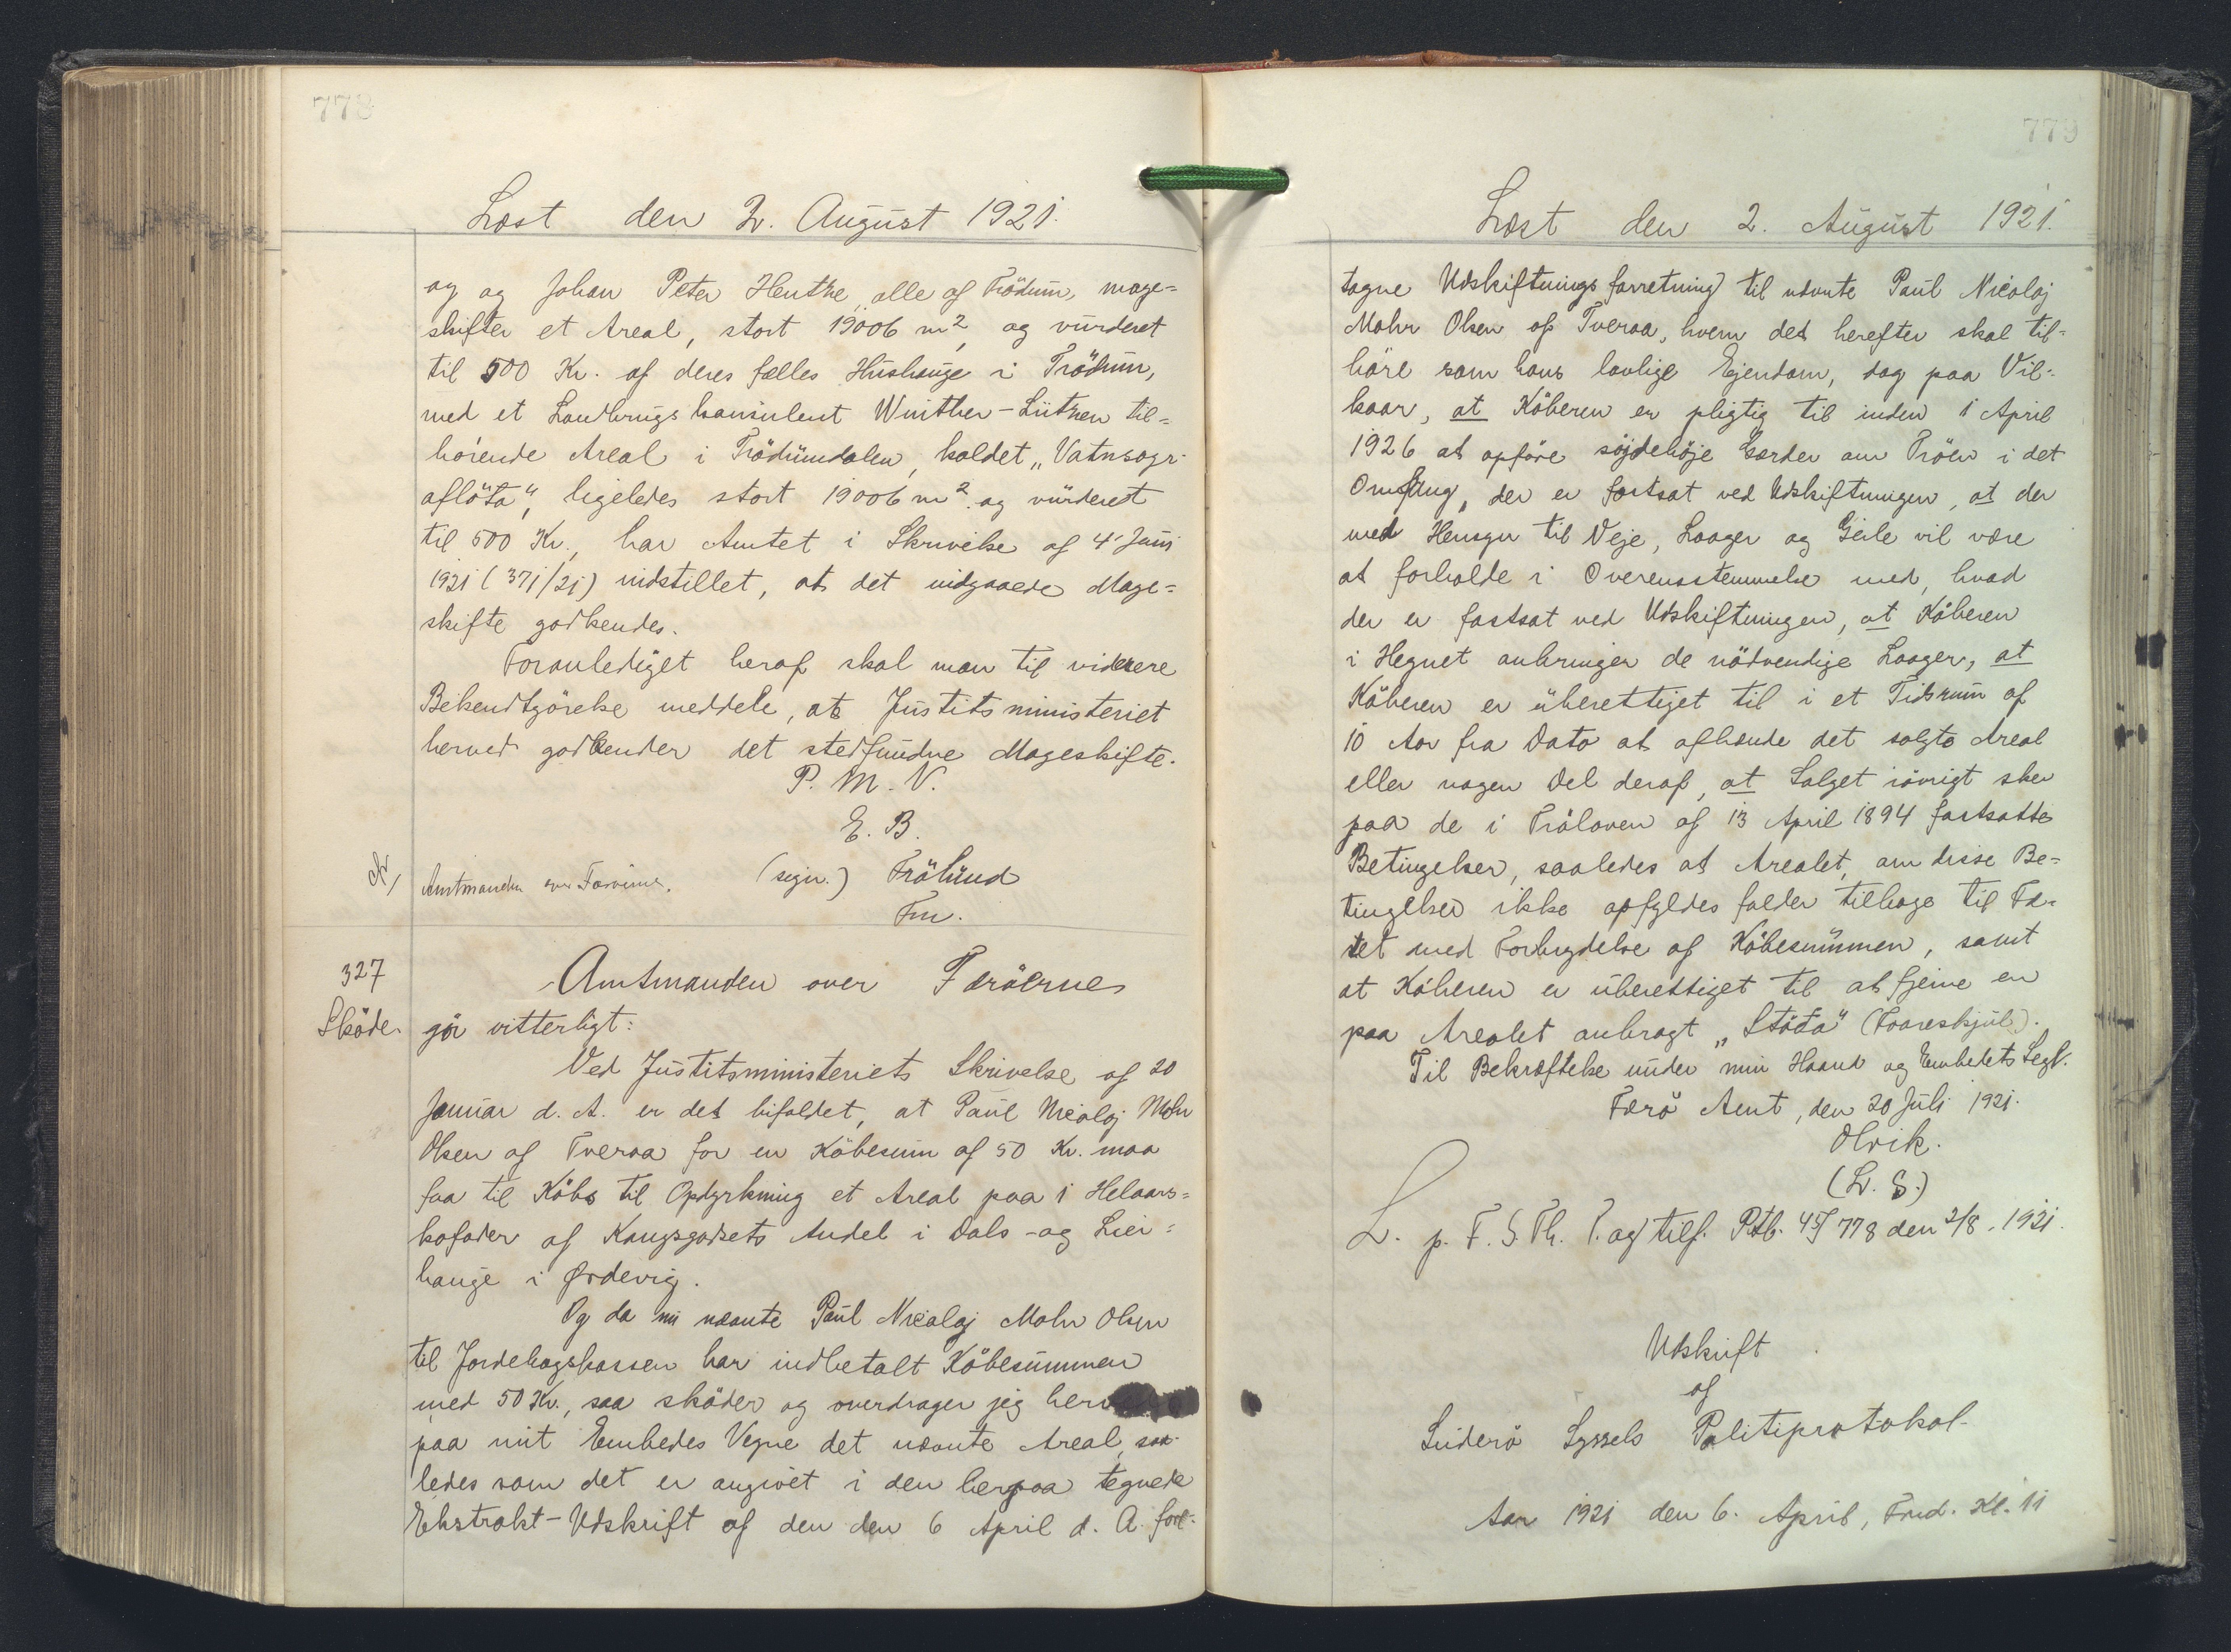 778
Læst den 2. August 1921.
og og Johan Peter Hentze, alle af Frödum, mage-
skifter et Areal, stort 19006 m², og vurderet
til 500 Kr. af deres fælles Hushauge i Frödum,
med et Landbrugskonsulent Winther-Lützen til-
hørende Areal i Frödumdalen, kaldet „Vatnsogr-
aflöta“, ligeledes stort 19006 m². og vurderet
til 500 Kr., har Amtet i Skrivelse af 4' Juni
1921 (371/21) indstillet, at det indgaaede Mage-
skifte godkendes.
Foranlediget heraf skal man til videre
Bekendtgörelse meddele, at Justitsministeriet
herved godkender det stedfundne Mageskifte.
P. M. V.
E. B.
(sign.) Frölund
Fm.
Amtmanden over Færöerne.
327
Sköde.
Amtmanden over Færöerne
gör vitterligt:
Ved Justitsministeriets Skrivelse af 20
Januar d. A. er det bifaldet, at Paul Nicolaj Mohr
Olsen af Tveraa for en Köbesum af 50 Kr. maa
faa til Köbs til Opdyrkning et Areal paa 1 Helaars-
kofoder af Kongsgodsets Andel i Dals- og Lier-
hauge i Ørdevig.
Og da nu nævnte Paul Nicolaj Mohr Olsen
til Jordebogskassen har indbetalt Köbesummen
med 50 Kr., saa sköder og overdrager jeg herved
paa mit Embedes Vegne det nævnte Areal, saa-
ledes som det er angivet i den herpaa tegnede
Ekstrakt-Udskrift af den den 6 April d. A. fore-
779
Læst den 2. August 1921.
tagne Udskiftningsforretning til nævnte Paul Nicolaj
Mohr Olsen af Tveraa, hvem det herefter skal til-
höre som hans lovlige Ejendom, dog paa Vil-
kaar, at Köberen er pligtig til inden 1 April
1926 at opföre söjdehöje Gærder om Tröen i det
Omfang, der er fastsat ved Udskiftningen, at der
med Hensyn til Veje, Laager og Geile vil være
at forholde i Overensstemmelse med, hvad
der er fastsat ved Udskiftningen, at Köberen
i Hegnet anbringer de nödvendige Laager, at
Köberen er uberettiget til i et Tidsrum af
10 Aar fra Dato at afhænde det solgte Areal
eller nogen Del deraf, at Salget iövrigt sker
paa de i Tröloven af 13 April 1894 fastsatte
Betingelser, saaledes at Arealet, om disse Be-
tingelser ikke opfyldes falder tilbage til Fæ-
stet med Forbrydelse af Köbesummen, samt
at Köberen er uberettiget til at fjerne en
paa Arealet anbragt „Stöda“ (Faareskjul).
Til Bekræftelse under min Haand og Embedets Segl.
Færö Amt, den 20 Juli 1921.
Olrik.
(L. S.)
L. p. F. S. Th. P. og tilf. Ptb. 45/778 den 2/8. 1921.
Udskrift
af
Suderö Syssels Politiprotokol-
Aar 1921 den 6. April, Fmd. Kl. 11